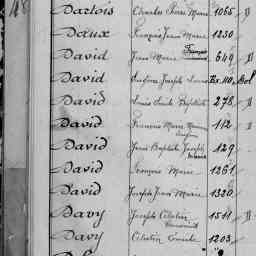 48
Dartois Charles Pierre Marie 1065 II
Daux François Jean Marie 1230
David Jean Marie François 649 II
David Joseph Ex. 110 Bol
David Louis Baptiste 278 II
David François Marie 112 I
David Jean Baptiste Joseph 429
David François Marie 1261
David Joseph Jean Marie 1320
Davy Joseph Célestin 1511 II
Davy Célestin 1203